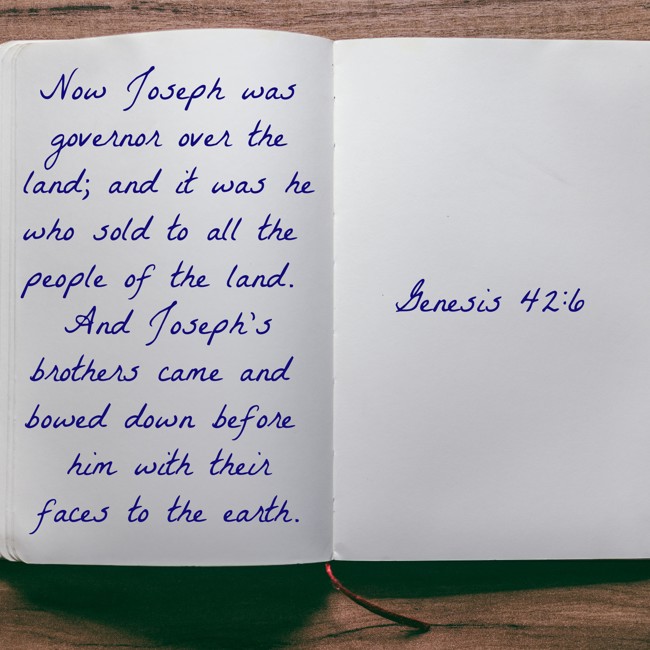 Now Joseph was
governor over the
land; and it was he
who sold to all the
people of the land.
And Joseph's
brothers came and
bowed down before
him with their
faces to the earth.
Genesis 42:6